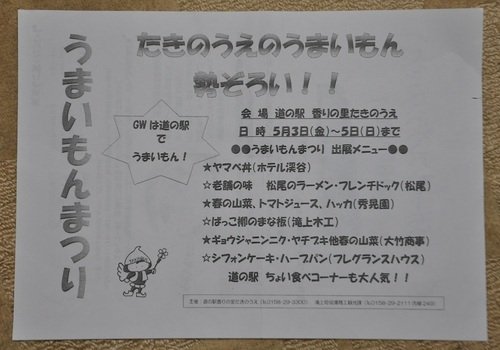 うまいもんまつり
たきのうえのうまいもん
勢ぞろい！！
GWは道の駅
で
うまいもん！
会 場 道の駅 香りの里たきのうえ
日 時 5月3日(金)～5日(日)まで
●●うまいもんまつり 出展メニュー●●
★ヤマベ丼(ホテル渓谷)
☆老舗の味 松尾のラーメン・フレンチドック(松尾)
★春の山菜、トマトジュース、ハッカ(秀晃園)
☆ばっこ柳のまな板(滝上木工)
★ギョウジャニンニク・ヤチブキ他春の山菜(大竹商事)
☆シフォンケーキ・ハーブパン(フレグランスハウス)
道の駅 ちょい食べコーナーも大人気！！
主催：道の駅香りの里たきのうえ(℡0158-29-3300) 滝上町役場商工観光課 (℡0158-29-2111 内線249)